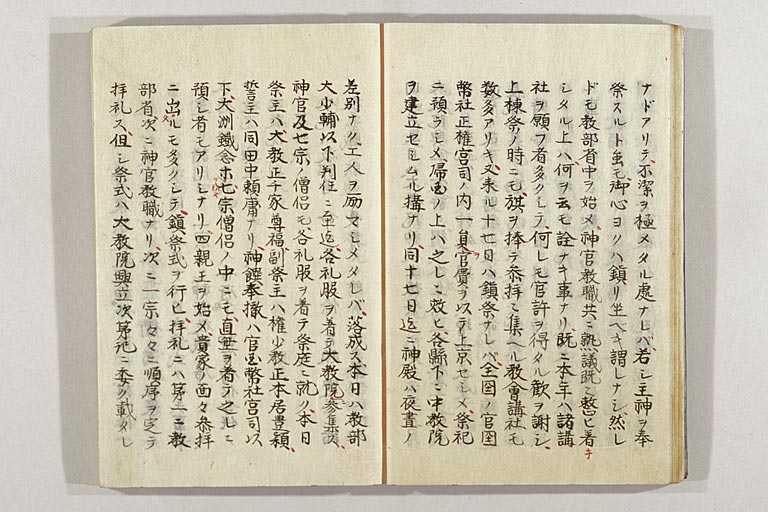 ナドアリテ不潔ヲ極メタル處ナレバ若シ主神ヲ奉
祭スルト虽モ御心ヨクハ鎮リ坐ベキ謂レナシ然レ
ドモ教部省中ヲ始メ神官教職共ニ熟議既ニ整ヒ着
手
シタル上ハ何ヲ云モ詮ナキ事ナリ既ニ本年ハ諸講
社ヲ願フ者多クシテ何レモ官許ヲ得タル歓ヲ謝シ
上棟祭ノ時ニモ旗ヲ捧テ参拝ニ集ヘル教會講社モ
数多アリキ又来ル十七日ハ鎮祭ナレバ全国ノ官国
幣社正権宮司ノ内一員官費ヲ以テ上京セシメ祭祀
ニ預ラシメ帰国ノ上ハ之レニ效ヒ各縣下ニ中教院
ヲ建立セシムル構ナリ同十七日迄ニ神殿ハ夜晝ノ
差別ナク工人ヲ励マシメタレバ落成ス本日ハ教部
大少輔以下判任ニ至迄各礼服ヲ着テ大教院参集
神官及七宗ノ僧侶モ各礼服ヲ着テ祭庭ニ就ク本日
祭主ハ大教正千家尊福副祭主ハ権少教正本居豊穎
誓主ハ同田中頼庸ナリ神饌奉撤ハ官国幣社宮司以
下大洲鐵念ホ七宗僧侶ノ中ニモ直垂ヲ着テ之レニ
預シ者モアリシナリ四親王ヲ始メ貴家ノ面々参拝
ニ出ルモ多クシテ鎮祭式ヲ行ヒ拝礼ニハ第一ニ教
部省次ニ神官教職ナリ次ニ一宗々々ニ順序ヲ定テ
拝礼ス但シ祭式ハ大教院興立次第祀ニ委ク載タレ